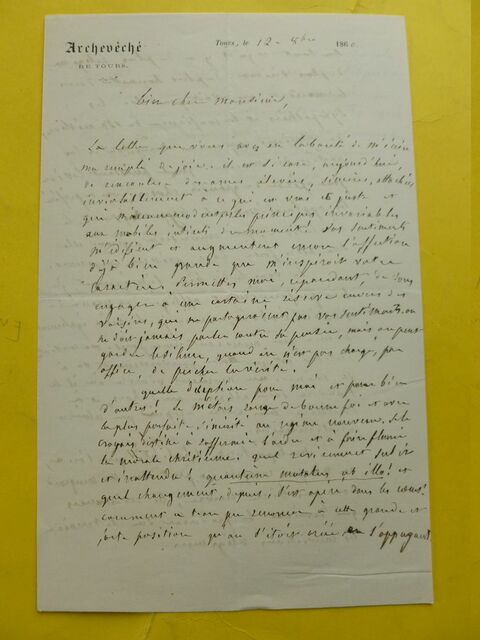 Archevêché
DE TOURS.
Tours, le 12 - 8bre 1860
bien cher monsieur,
La lettre que vous avez eu la bonté de m'écrire
m'a rempli de joie : il est si rare, aujourd'hui,
de rencontrer des ames élevées, sincères, attachées
inviolablement à ce qui est vrai et juste et
qui n'accommodent pas les principes invariables
aux mobiles intérêts du moment! vos sentiments
m'édifient et augmentent encore l'affection
déjà bien grande que m'inspiroit votre
caractère. Permettez moi, cependant, de vous
engager à une certaine réserve envers des
voisins, qui ne partageroient pas vos sentiments. on
ne doit jamais parler contre sa pensée, mais on peut
garder le silence, quand on n'est pas chargé, par
office, de prêcher la vérité.
quelle déception pour moi et pour bien
d'autres! je m'étois rangé de bonne foi et avec
la plus parfaite sincérité au régime nouveau. je le
croyois destiné à raffermir l'ordre et à faire fleurir
la morale chrétienne. quel revirement subit
et inattendu! quantum mutatus ab illo! et
quel changement, depuis, s'est opéré dans les cœurs!
comment a-t-on pu renoncer à cette grande et
forte position qu'on s'étoit créée en s'appuyant